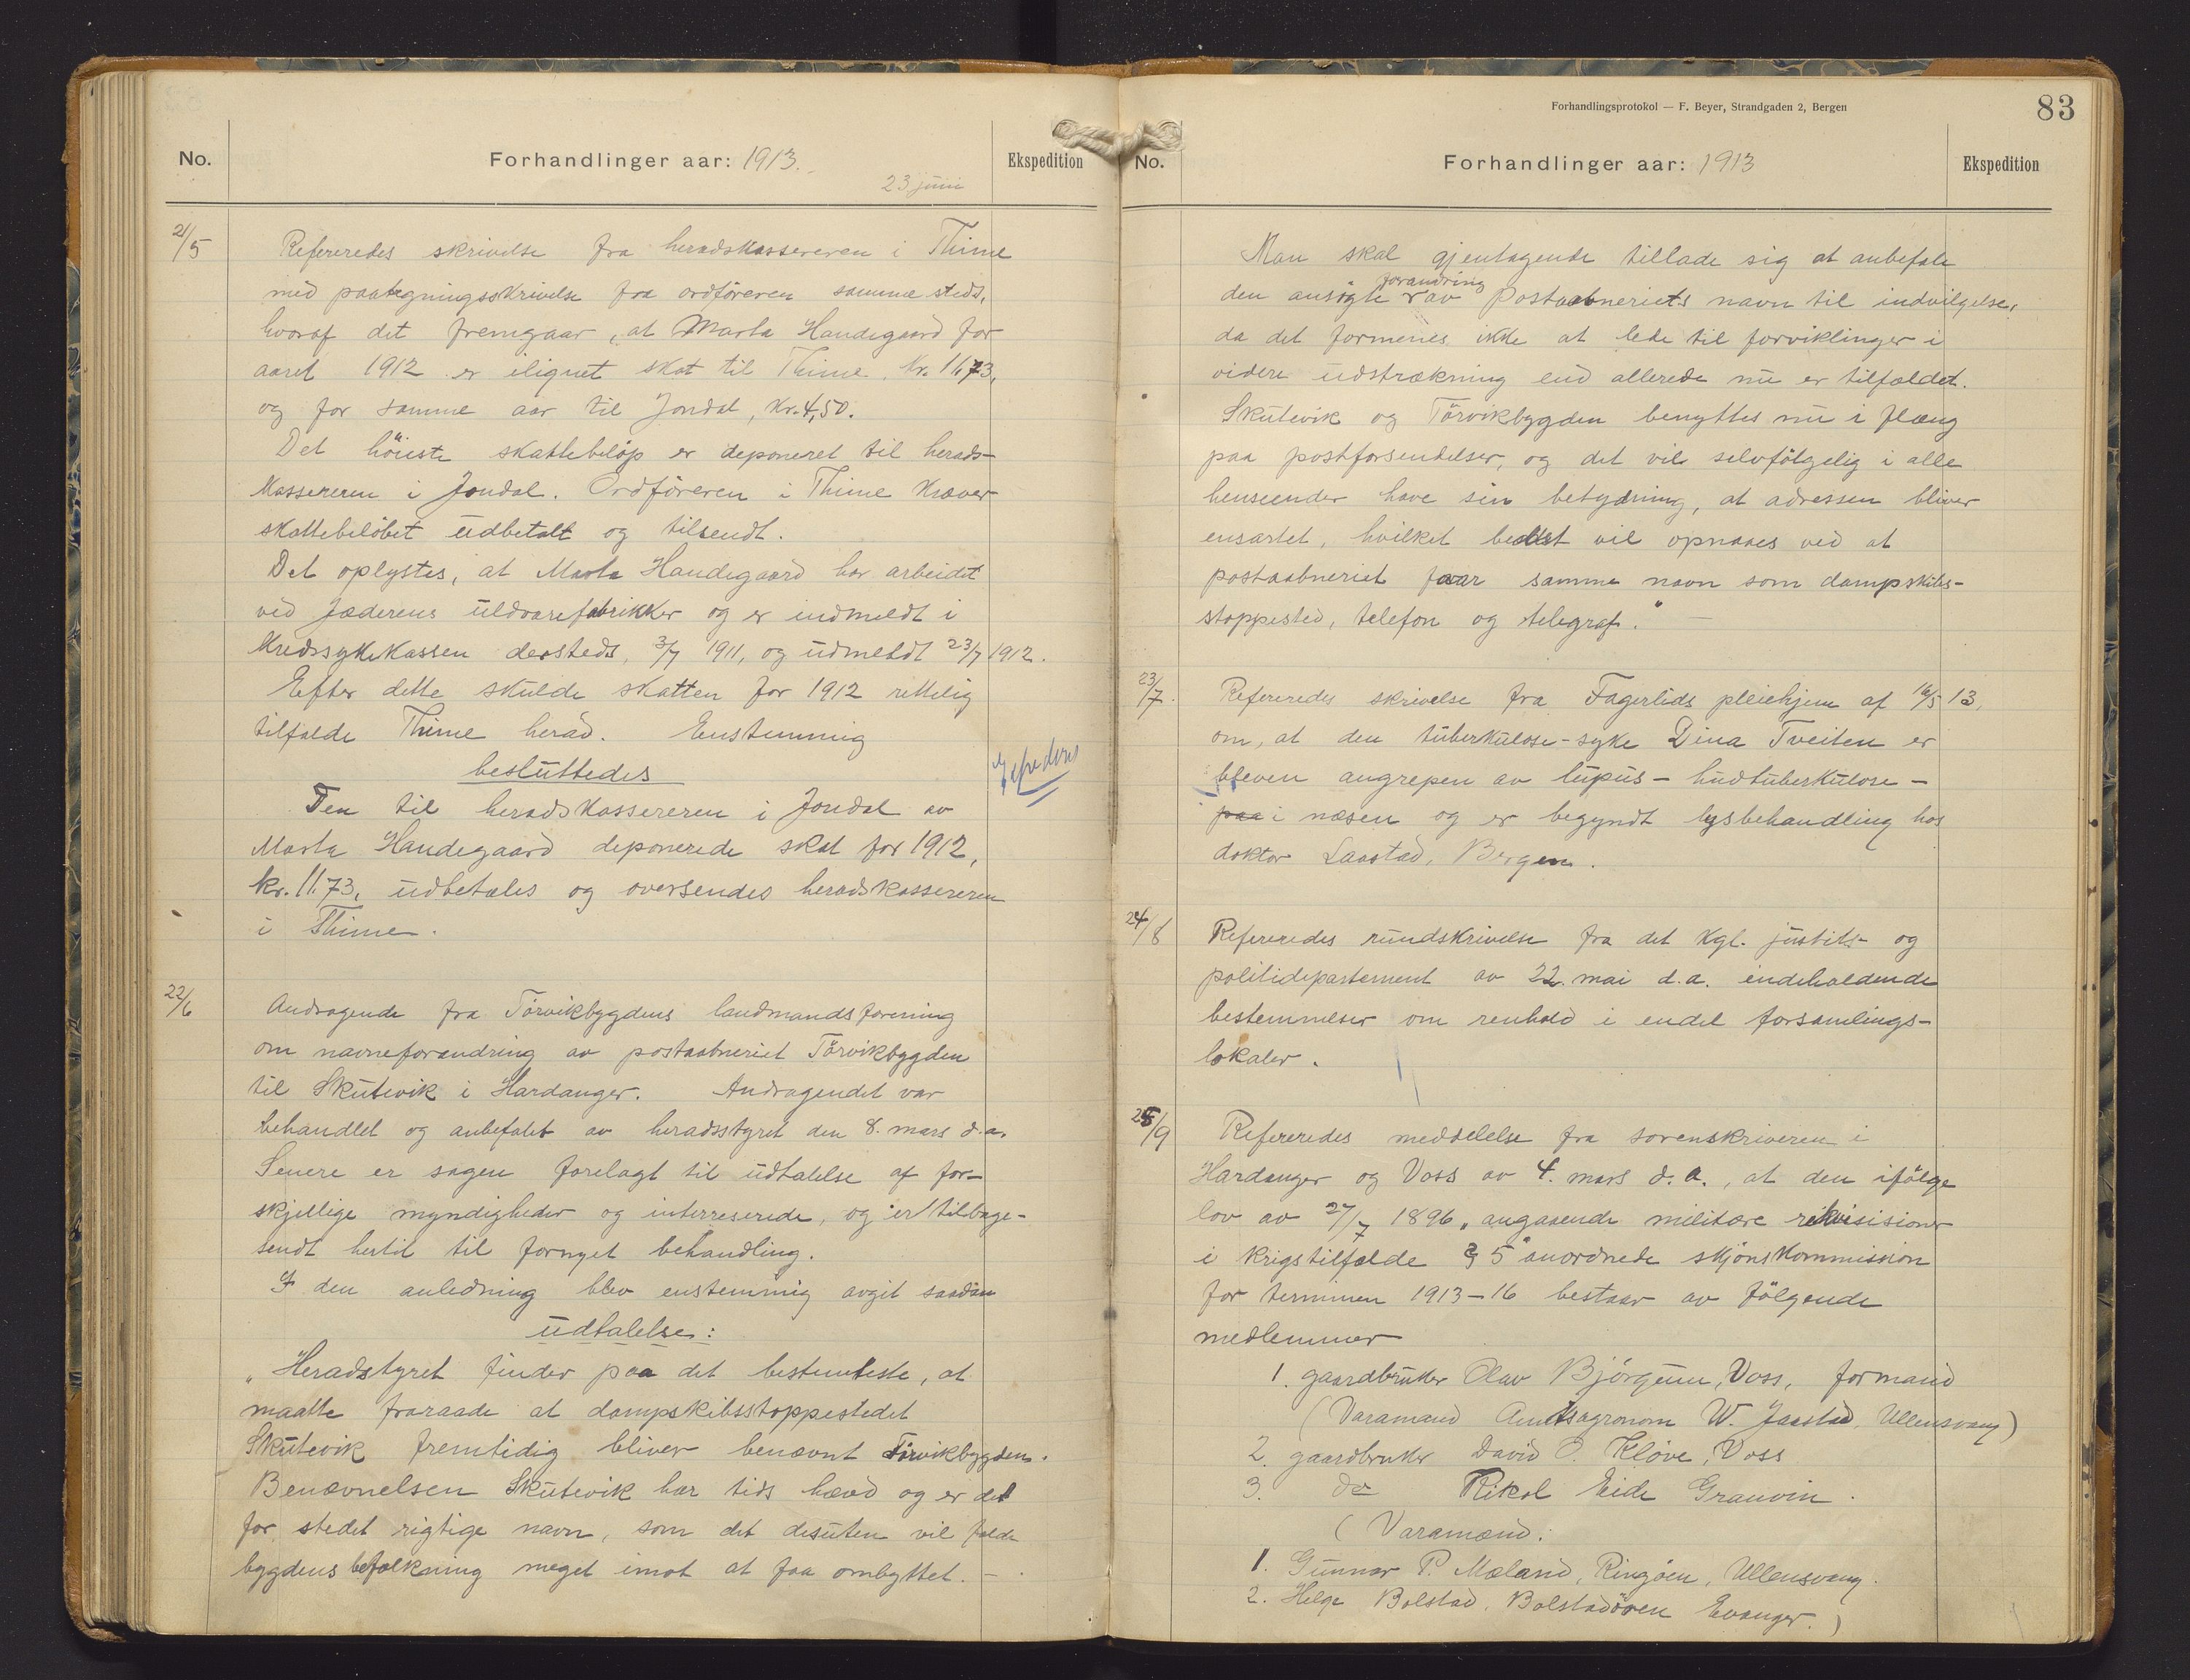 No.
Forhandlinger aar: 1913.
23 juni
Ekspedition
21/5
Refereredes skrivelse fra heradskassereren i Thime
med paategningsskrivelse fra ordföreren samme steds,
hvoraf det fremgaar, at Marta Handegaard for
aaret 1912 er ilignet skat til Thime, kr. 11,73,
og for samme aar til Jondal, kr. 4,50.
Det höieste skattebelöp er deponeret til herads-
kassereren i Jondal. Ordföreren i Thime kræver
skattebelöbet udbetalt og tilsendt.
Det oplystes, at Marta Handegaard har arbeidet
ved Jæderens uldvarefabrikker og er indmeldt i
kredssykekassen dersteds, 3/7 1911, og udmeldt 23/7 1912.
Efter dette skulde skatten for 1912 rettelig
tilfalde Thime herad. Enstemmig
besluttedes
Den til heradskassereren i Jondal av
Marta Handegaard deponerede skat for 1912,
kr. 11.73, udbetales og oversendes heradskassereren
i Thime.
22/6
Andragende fra Törvikbygdens landmandsforening
om navneforandring av postaabneriet Törvikbygden
til Skutevik i Hardanger. Andragendet var
behandlet og anbefalet av heradsstyret den 8. mars d.a.
Senere er sagen forelagt til udtalelse af for-
skjellige myndigheder og interreserede, og er tilbage-
sendt hertil til fornyet behandling.
I den anledning blev enstemmig avgit saadan
udtalelse:
"Heradstyret finder paa det bestemteste, at
maatte fraraade at dampskibsstoppestedet
Skutevik fremtidig bliver benævnt Törvikbygden.
Benævnelsen Skutevik har tids hævd og er det
for stedet rigtige navn, som det desuten vil falde
bygdens befolkning meget imot at faa ombyttet. –
Forhandlingsprotokol — F. Beyer, Strandgaden 2, Bergen
83
No.
Forhandlinger aar: 1913
Ekspedition
Man skal gjentagende tillade sig at anbefale
forandring
den ansögte av postaabneriets navn til indvilgelse,
da det formenes ikke at lede til forviklinger i
videre udstrækning end allerede nu er tilfældet.
Skutevik og Törvikbygden benyttes nu i flæng
paa postforsendelser, og det vil selvfölgelig i alle
henseender have sin betydning, at adressen bliver
ensartet, hvilket bedst vil opnaaes ved at
postaabneriet faar samme navn som dampskibs-
stoppested, telefon og telegraf." –
23/7.
Refereredes skrivelse fra Fagerlids pleiehjem af 16/5 13,
om, at den tuberkulose-syke Dina Tveiten er
bleven angrepen av lupus – hudtuberkulose –
paa i næsen og er begyndt lysbehandling hos
doktor Laastad, Bergen.
24/8
Refereredes rundskrivelse fra det kgl. justits- og
politidepartement av 22. mai d.a. indeholdende
bestemmelser om renhold i endel forsamlings-
lokaler.
25/9
Refereredes meddelelse fra sorenskriveren i
Hardanger og Voss av 4. mars d.a., at den ifölge
lov av 27/7 1896 "angaaende militære rekvisisioner
i krigstilfælde § 5" anordnede skjönskommission
for terminen 1913–16 bestaar av fölgende
medlemmer
1. gaardbruker Olav Björgum, Voss, formand
(Varamand Amtsagronom W. Jaastad, Ullensvang)
2. gaardbruker David O. Klöve, Voss
3. do Rikol Eide Granvin.
(Varamænd:
1. Gunnar P. Mæland, Ringöen, Ullensvang.
2. Helge Bolstad, Bolstadören Evanger.)